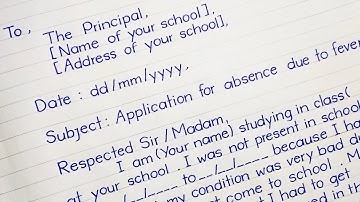 To,
The Principal,
[Name of your school],
[Address of your school],
Date : dd/mm/yyyy,
Subject: Application for absence due to fever
Respected Sir/Madam,
I am (Your name) studying in class(
at your school. I was not present in school
__/__/____ to __/__/____ because I ha
my condition was very bad d
not come to school. M
at I had to get
ed in th